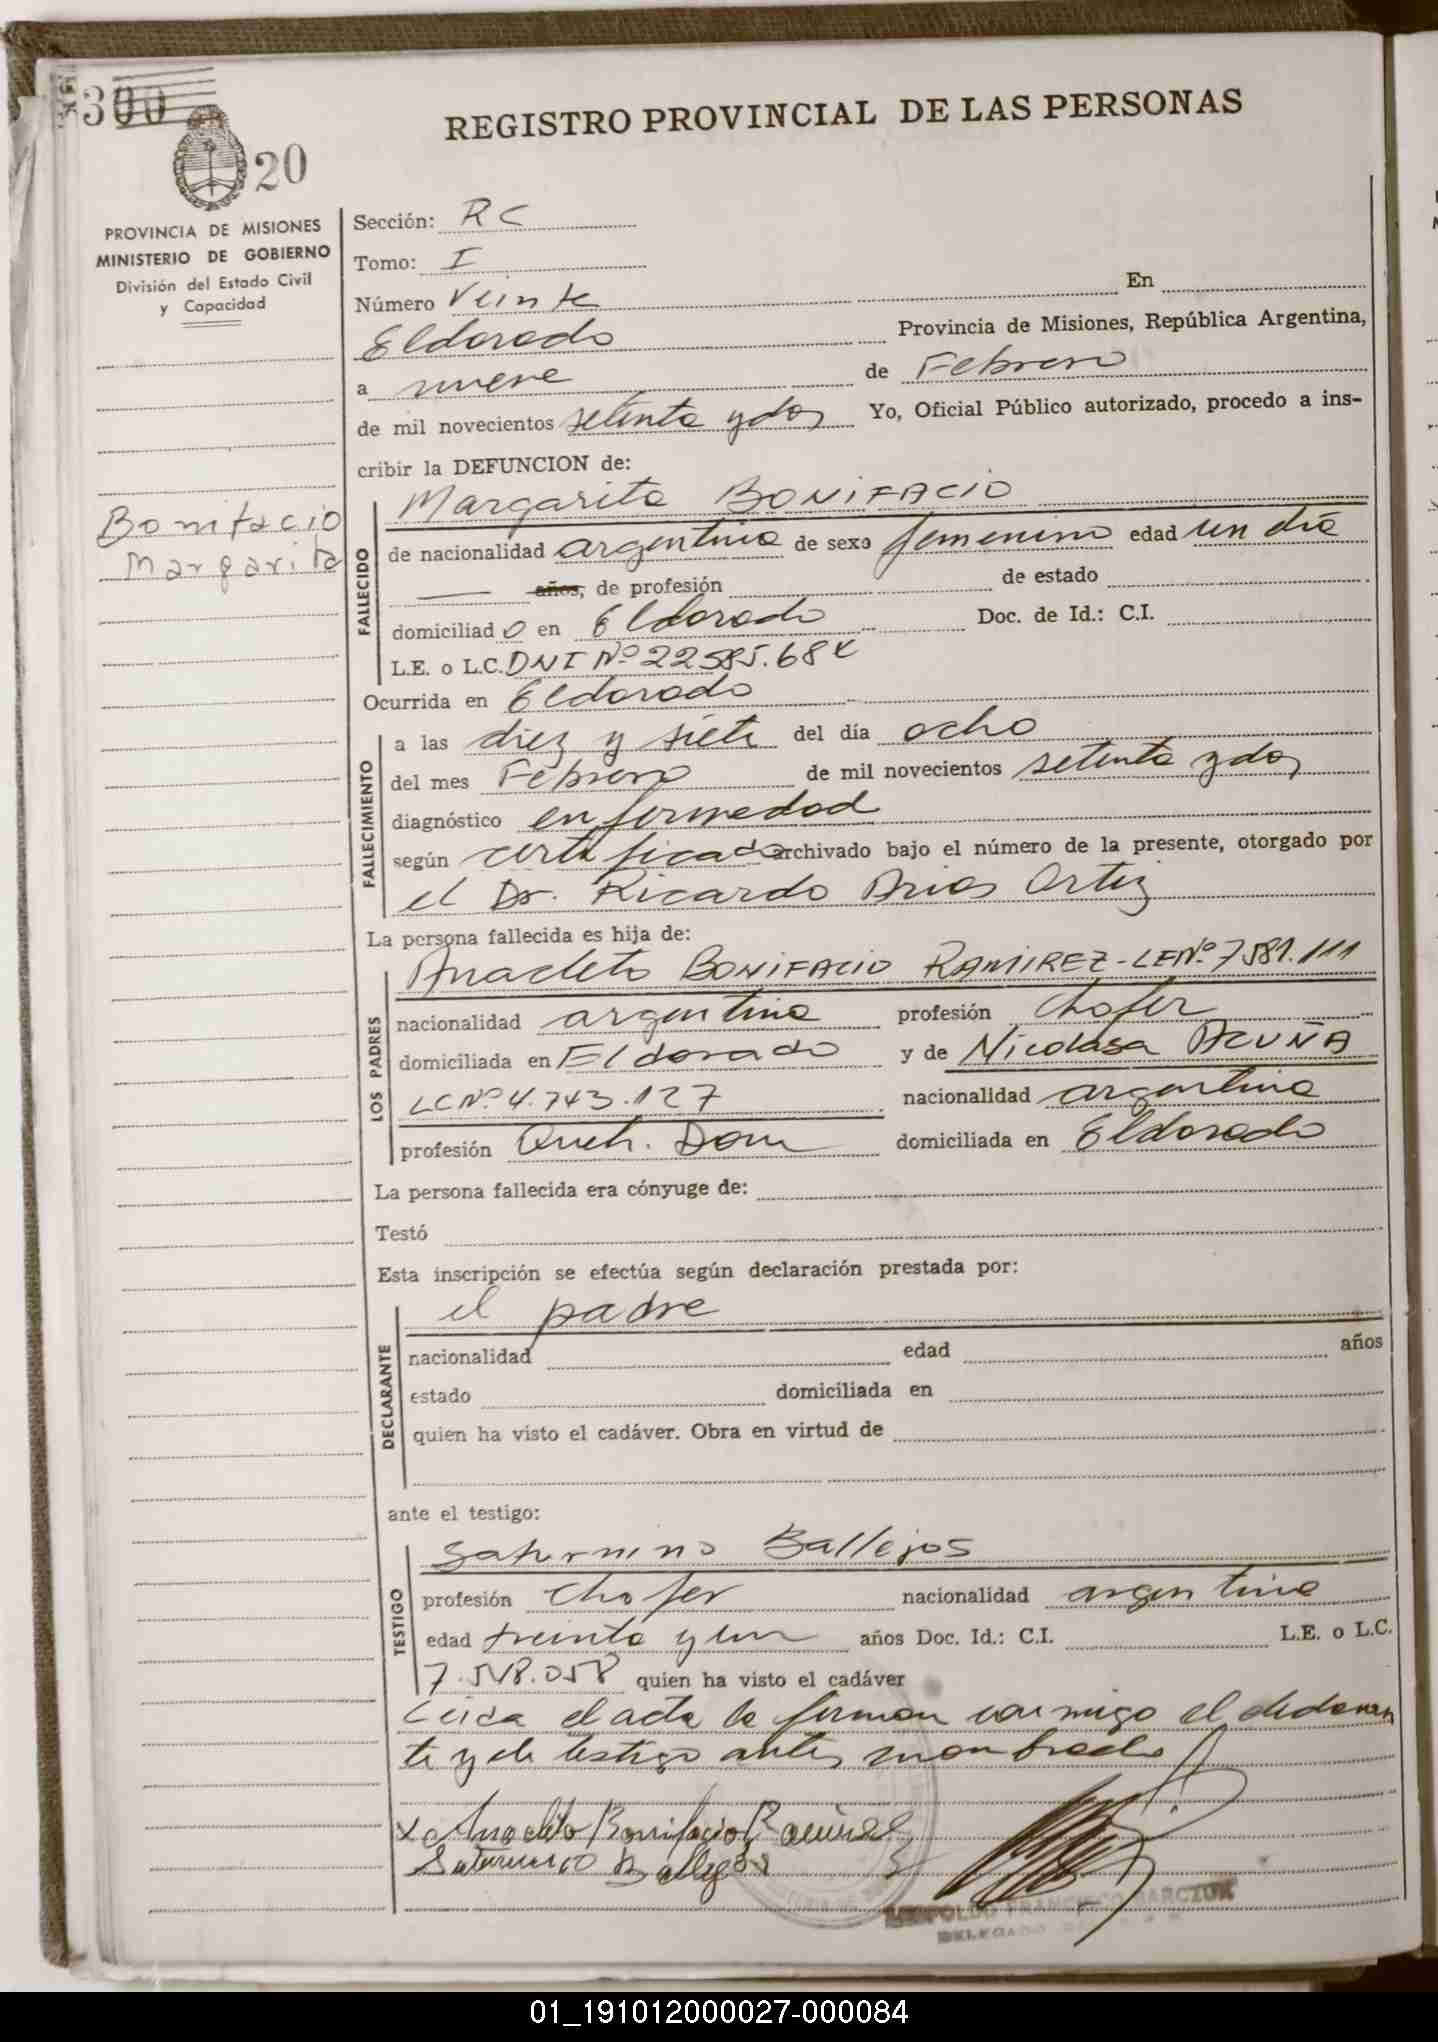 300
20
REGISTRO PROVINCIAL DE LAS PERSONAS
PROVINCIA DE MISIONES
MINISTERIO DE GOBIERNO
División del Estado Civil
y Capacidad
Bonifacio
Margarita
Sección: RC
Tomo: I
Número Veinte En
Eldorado Provincia de Misiones, República Argentina,
a nueve de Febrero
de mil novecientos setenta y dos Yo, Oficial Público autorizado, procedo a ins-
cribir la DEFUNCION de:
FALLECIDO
Margarita BONIFACIO
de nacionalidad argentina de sexo femenino edad un día
años, de profesión de estado
domiciliado en Eldorado Doc. de Id.: C.I.
L.E. o L.C. DNI Nº 22585.684
Ocurrida en Eldorado
FALLECIMIENTO
a las diez y siete del día ocho
del mes Febrero de mil novecientos setenta y dos
diagnóstico enfermedad
según certificado archivado bajo el número de la presente, otorgado por
el Dr. Ricardo Arias Ortiz
La persona fallecida es hija de:
LOS PADRES
Anacleto BONIFACIO RAMIREZ - LE Nº 7581.111
nacionalidad argentina profesión chofer
domiciliada en Eldorado y de Nicolasa ACUÑA
LC Nº 4.743.127 nacionalidad argentina
profesión Queh. Dom domiciliada en Eldorado
La persona fallecida era cónyuge de:
Testó
Esta inscripción se efectúa según declaración prestada por:
DECLARANTE
el padre
nacionalidad edad años
estado domiciliada en
quien ha visto el cadáver. Obra en virtud de
ante el testigo:
TESTIGO
Saturnino Ballejos
profesión chofer nacionalidad argentina
edad treinta y un años Doc. Id.: C.I. L.E. o L.C.
7.548.058 quien ha visto el cadáver
Leida el acta la firman conmigo el declaran
te y el testigo antes nombrado
x Anacleto Bonifacio Ramirez
Saturnino Ballejos
LEOPOLDO FRANCISCO BARCZUK
DELEGADO
01_191012000027-000084